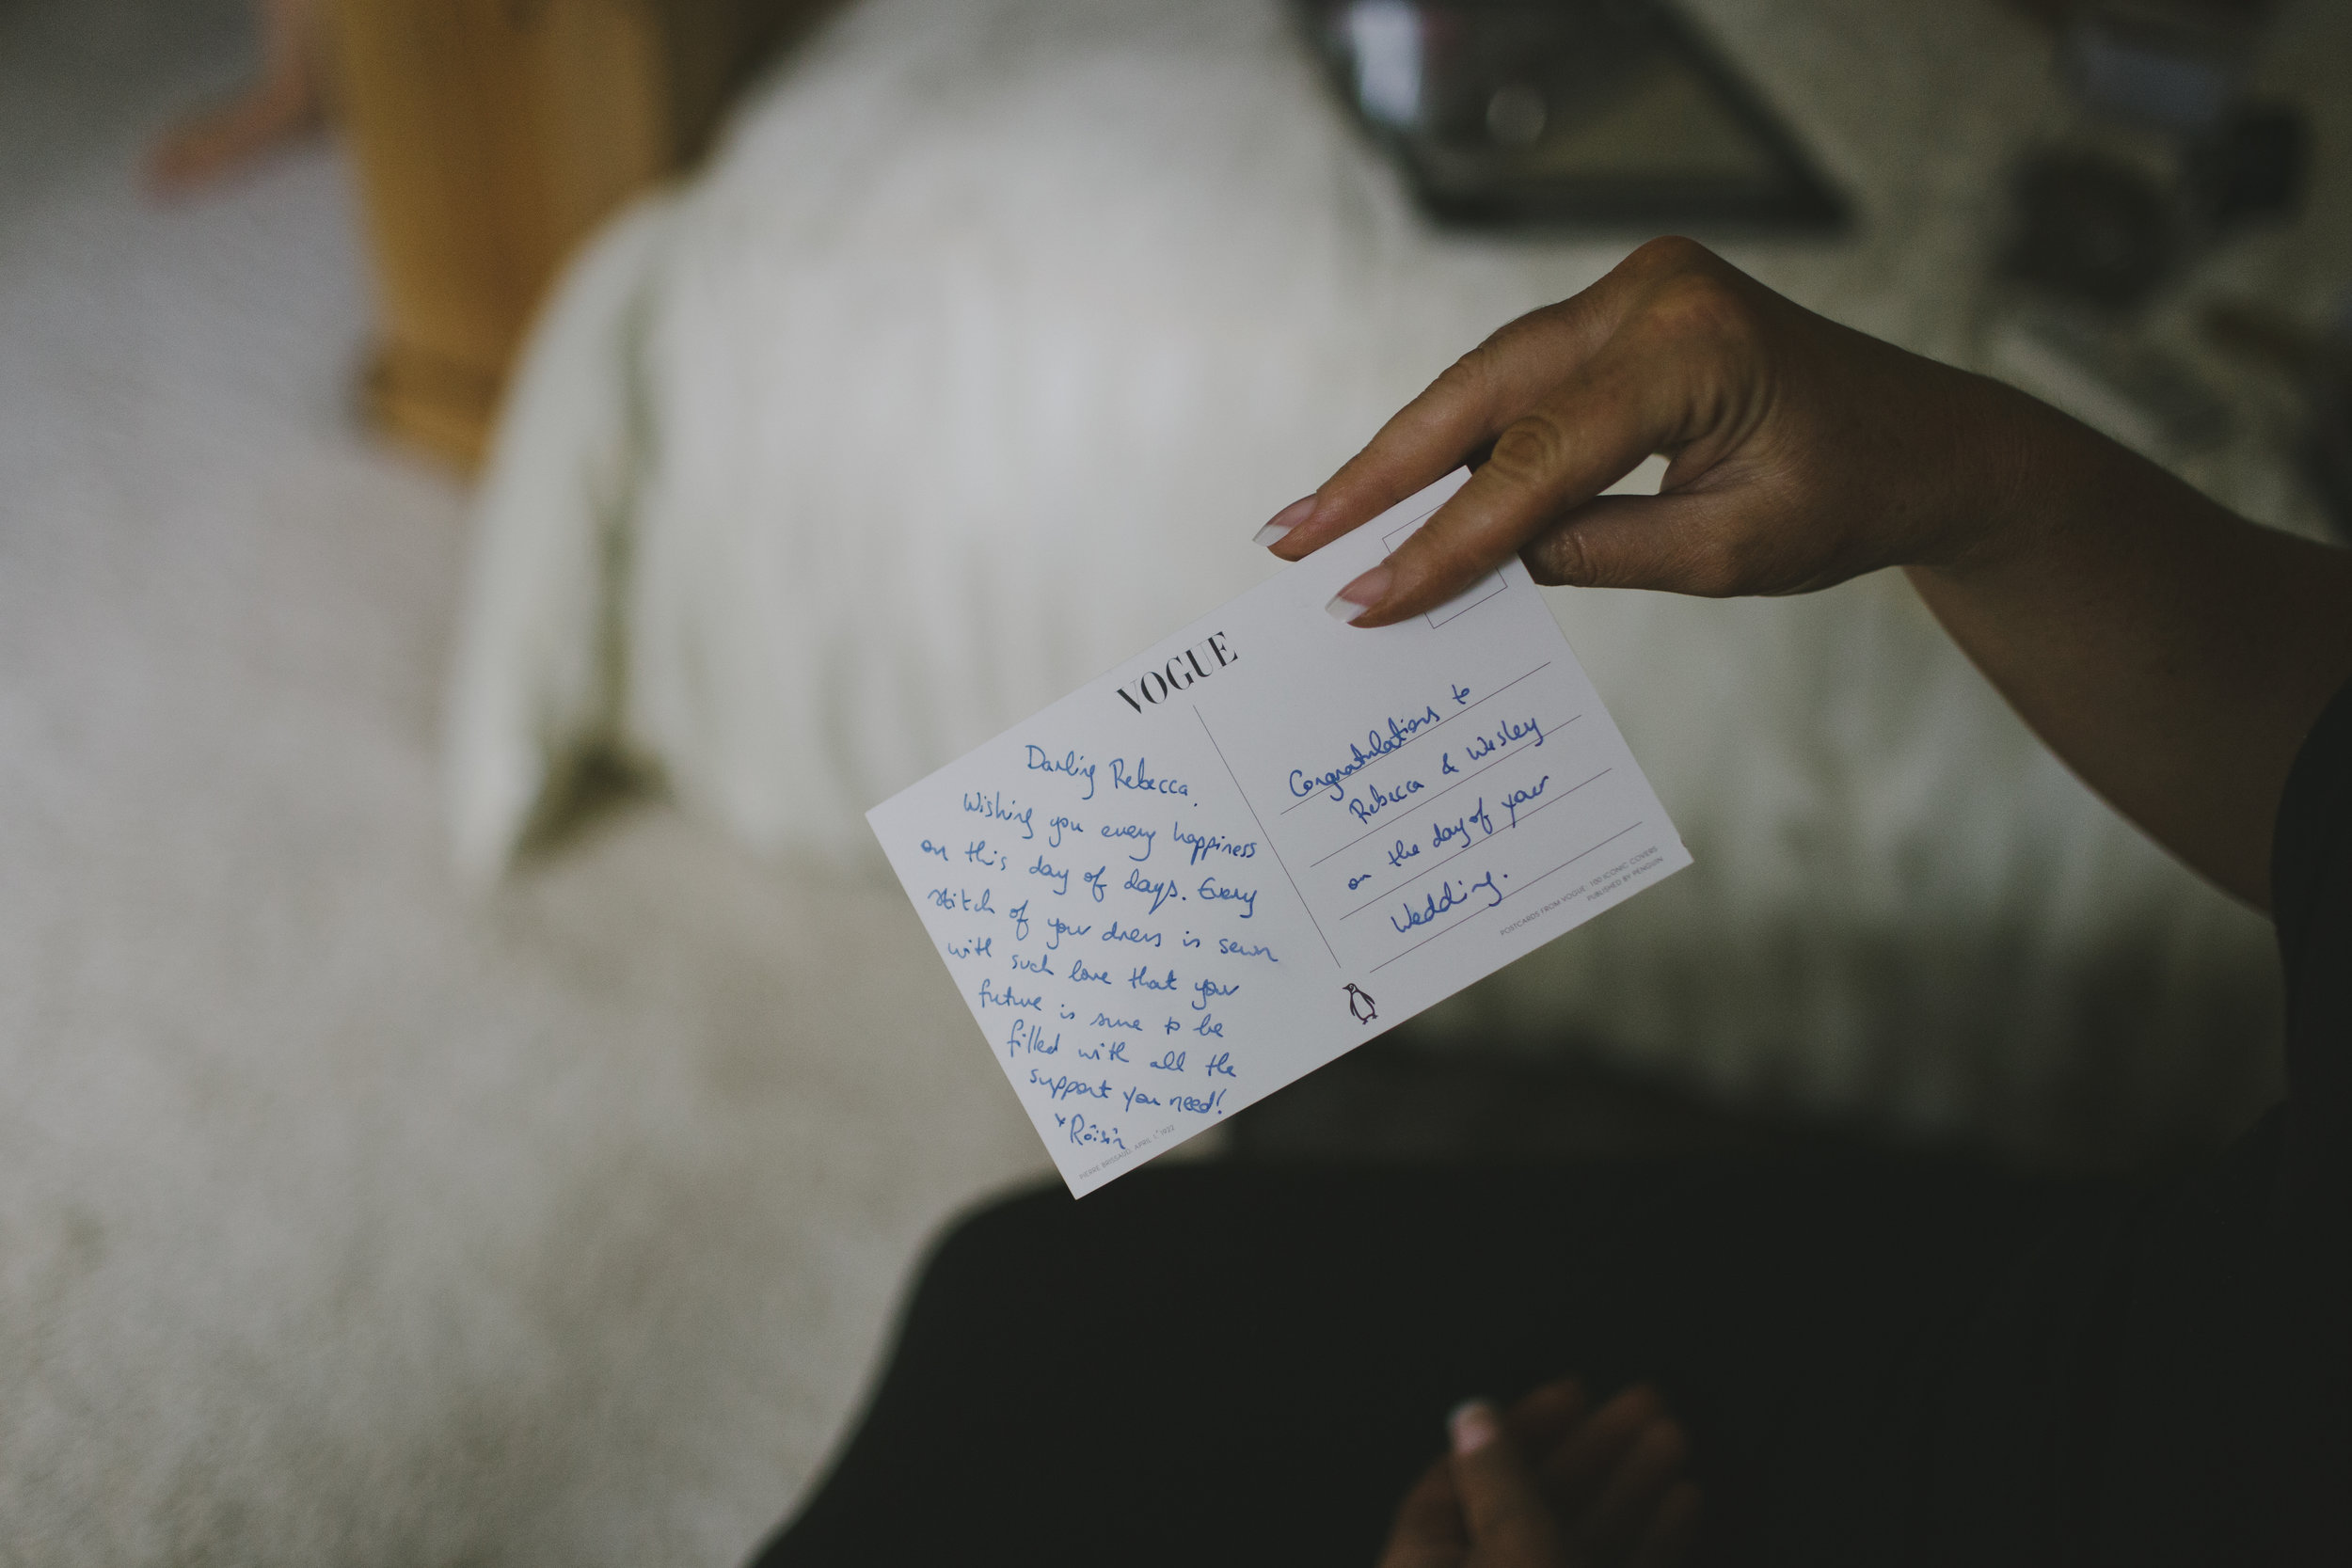 VOGUE
Darling Rebecca.
Wishing you every happiness
on this day of days. Every
stitch of your dress is sewn
with such love that your
future is sure to be
filled with all the
support you need!
x Róisín
PIERRE BRISSAUD, APRIL 1, 1922
Congratulations to
Rebecca & Wesley
on the day of your
Wedding.
POSTCARDS FROM VOGUE: 100 ICONIC COVERS
PUBLISHED BY PENGUIN